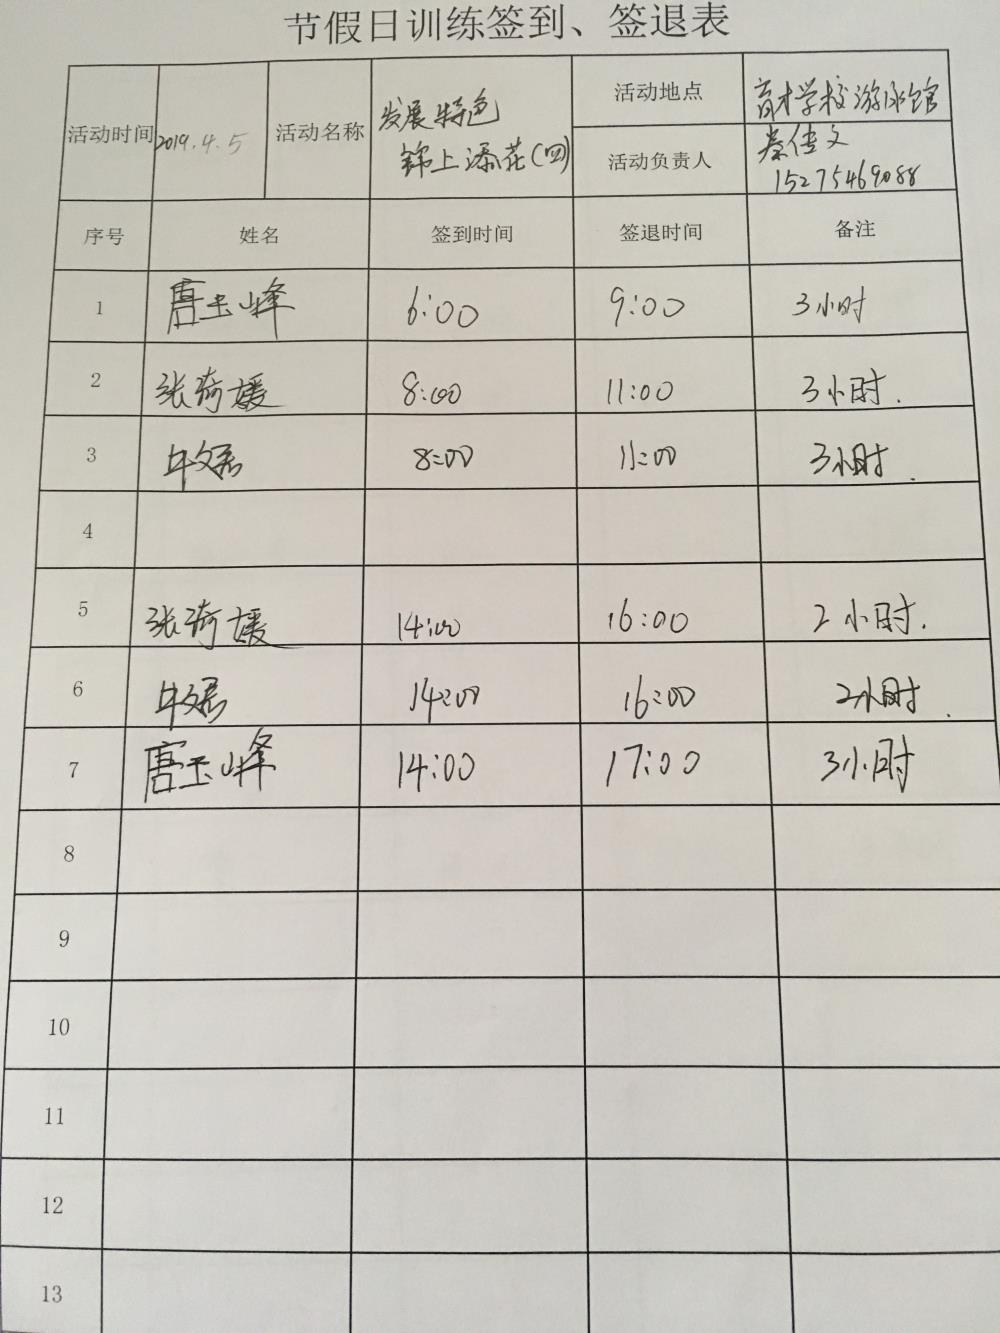 节假日训练签到、签退表
活动时间 2019.4.5 活动名称 发展特色 锦上添花(四) 活动地点 育才学校游泳馆
活动负责人 秦传文
15275469088
序号 姓名 签到时间 签退时间 备注
1 唐玉峰 6:00 9:00 3小时
2 张琦媛 8:00 11:00 3小时.
3 牛文君 8:00 11:00 3小时.
4
5 张琦媛 14:00 16:00 2小时.
6 牛文君 14:00 16:00 2小时.
7 唐玉峰 14:00 17:00 3小时
8
9
10
11
12
13